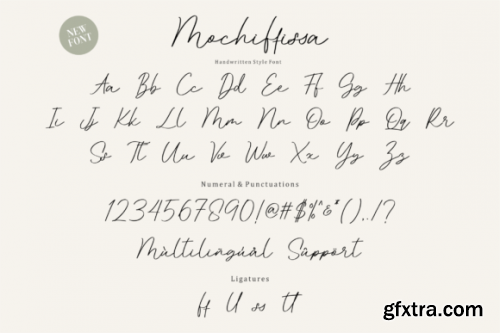 NEW
FONT
Mochiffissa
Handwritten Style Font
Aa Bb Cc Dd Ee Ff Gg Hh
Ii Jj Kk Ll Mm Nn Oo Pp Qq Rr
Ss Tt Uu Vv Ww Xx Yy Zz
Numeral & Punctuations
1234567890!@#$%^&*()..!?
Mùltilingùàl Sùppört
Ligatures
ff ll ss tt
gfxtra.com